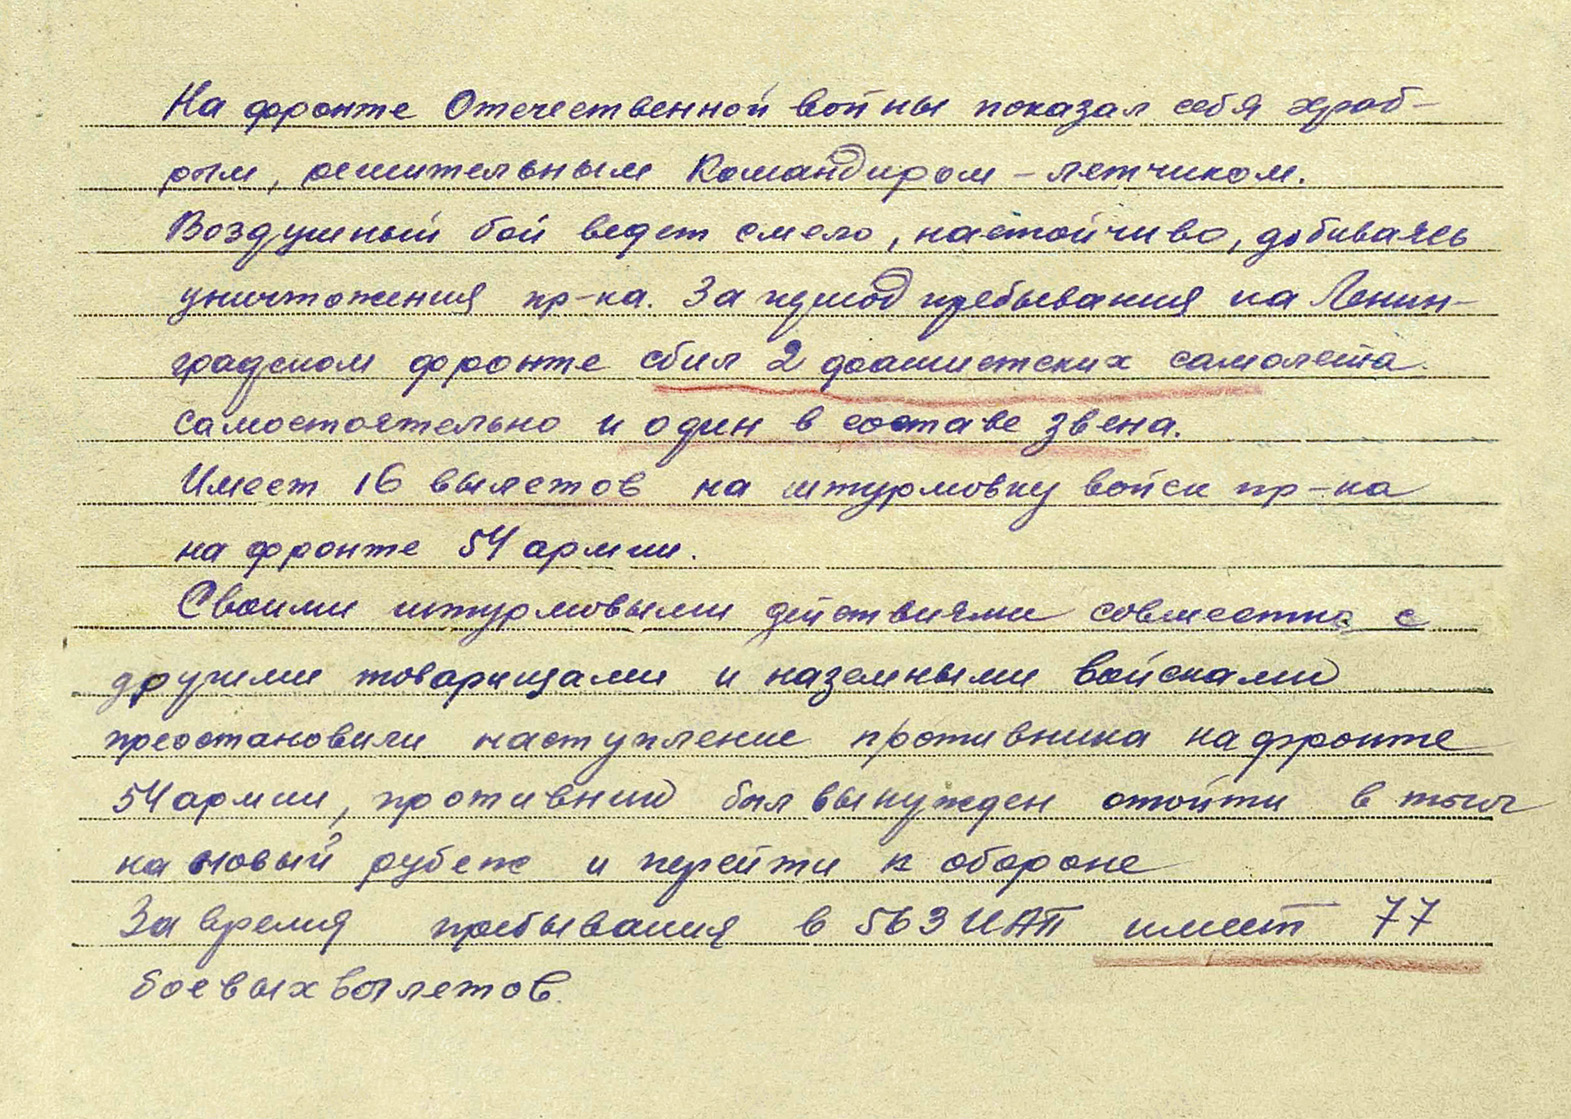 На фронте Отечественной войны показал себя храб-
рым, решительным командиром-летчиком.
Воздушный бой ведет смело, настойчиво, добиваясь
уничтожения пр-ка. За период пребывания на Ленин-
градском фронте сбил 2 фашистских самолета
самостоятельно и один в составе звена.
Имеет 16 вылетов на штурмовку войск пр-ка
на фронте 54 армии.
Своими штурмовыми действиями совместно с
другими товарищами и наземными войсками
преостановили наступление противника на фронте
54 армии, противник был вынужден отойти в тыл
на новый рубеж и перейти к обороне
За время пребывания в 563 ИАП имеет 77
боевых вылетов.